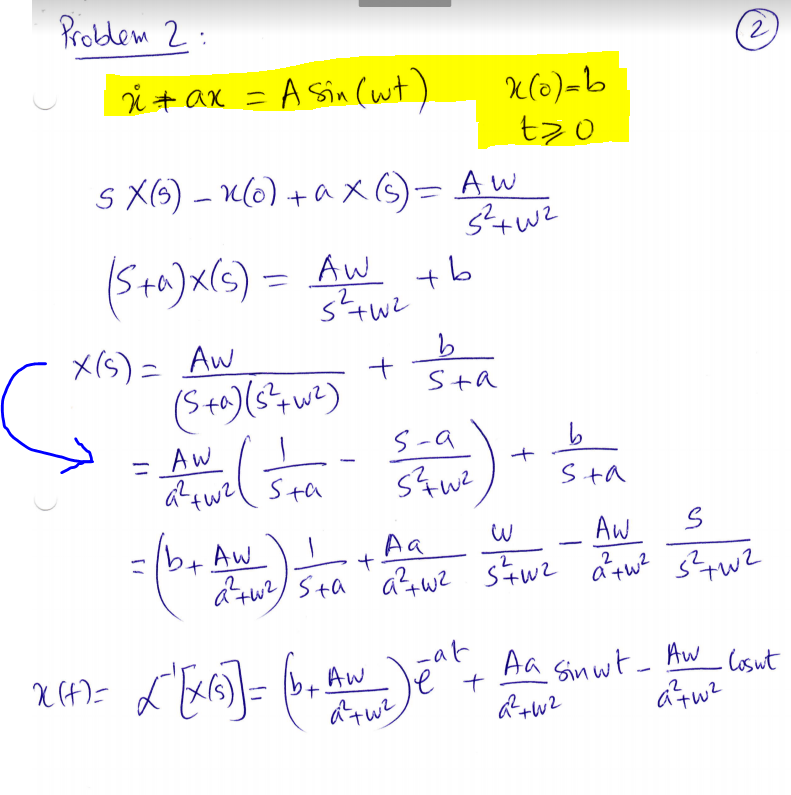 Problem 2 :
②
ẋ + ax = A sin(wt)    x(0)=b
t ⩾ 0
s X(s) – x(0) + a X(s) = Aw / (s²+w²)
(s+a)x(s) = Aw / (s²+w²) + b
X(s) = Aw / ((s+a)(s²+w²)) + b / (s+a)
= Aw / (a²+w²) ( 1 / (s+a) – (s-a) / (s²+w²) ) + b / (s+a)
= (b + Aw / (a²+w²)) 1 / (s+a) + Aa / (a²+w²) w / (s²+w²) – Aw / (a²+w²) s / (s²+w²)
x(t) = ℒ⁻¹[x(s)] = (b + Aw / (a²+w²)) e^(-at) + Aa / (a²+w²) sin wt – Aw / (a²+w²) Cos wt